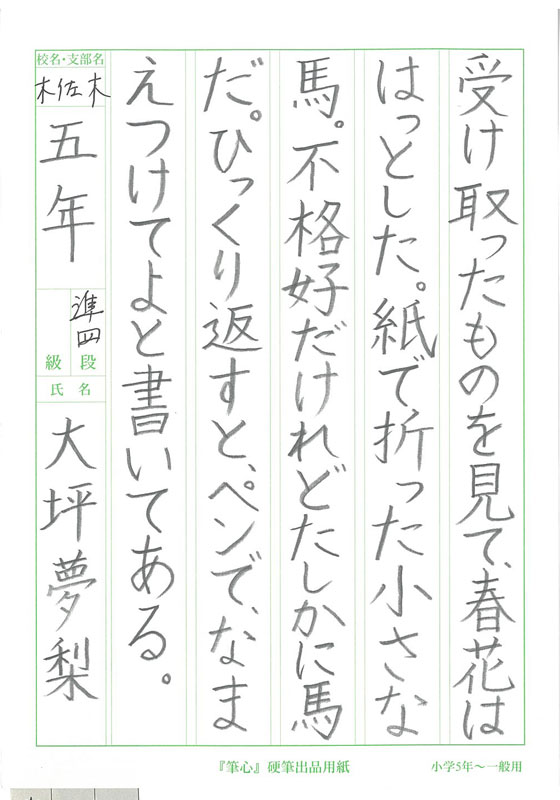 受け取ったものを見て、春花は
はっとした。紙で折った小さな
馬。不格好だけれどたしかに馬
だ。ひっくり返すと、ペンで、なま
えつけてよと書いてある。
校名・支部名
木佐木
五年
準四
級 段
氏名
大坪夢梨
『筆心』硬筆出品用紙
小学5年～一般用